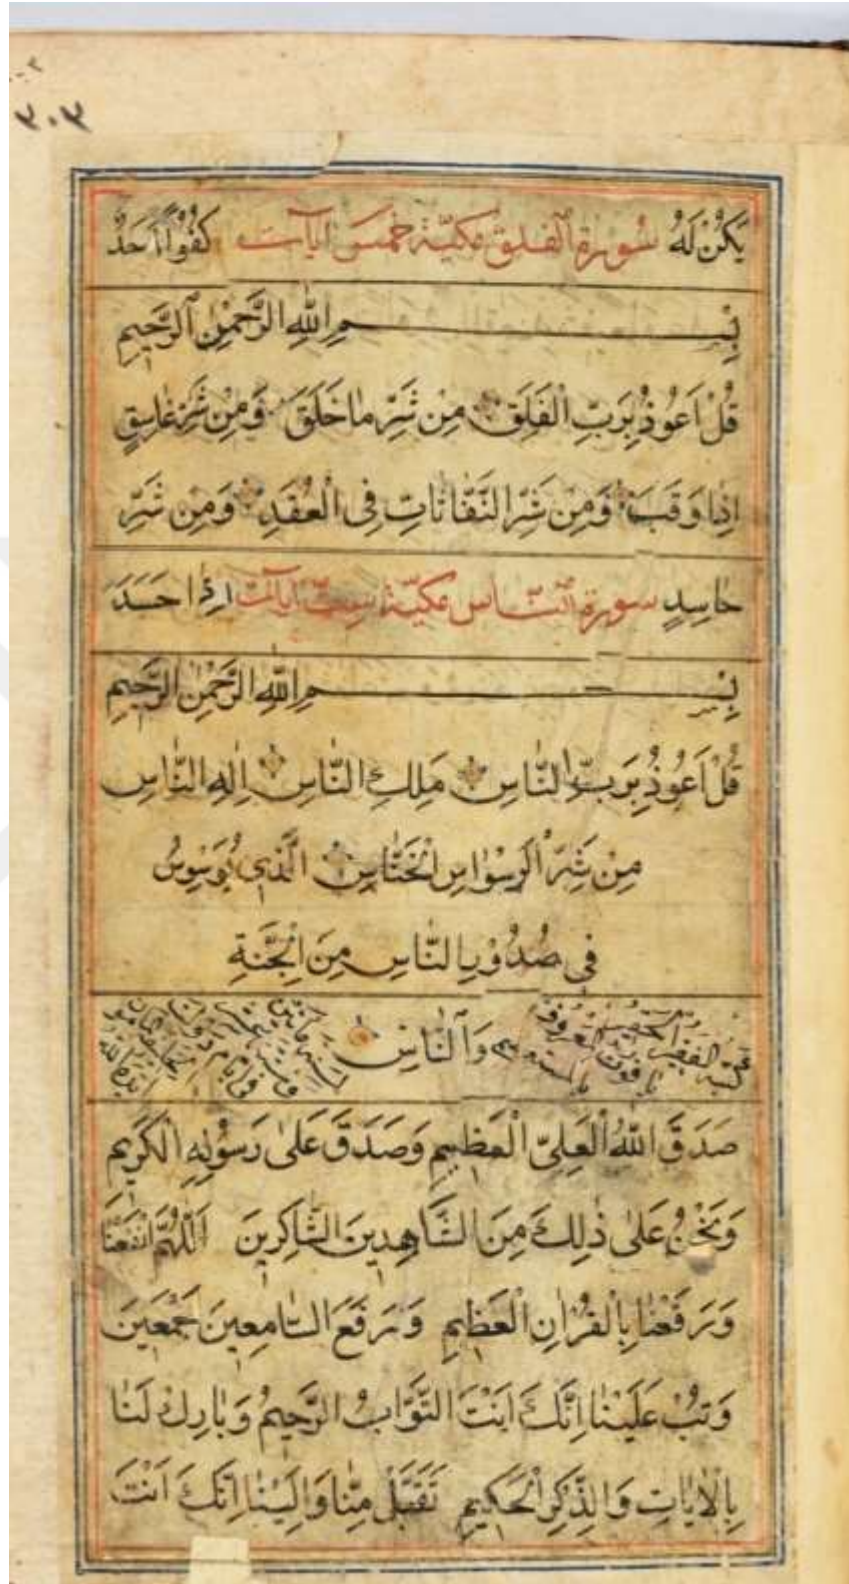 ٣٠٣
يَكُنْ لَهُ سورة الفلق مكية خمس ايآت كُفُوًا اَحَدٌ
بِسْمِ اللّٰهِ الرَّحْمٰنِ الرَّحِيمِ
قُلْ اَعُوذُ بِرَبِّ الْفَلَقِ مِنْ شَرِّ مٰا خَلَقَ وَمِنْ شَرِّ غٰاسِقٍ
اِذٰا وَقَبَ وَمِنْ شَرِّ النَّفّٰاثٰاتِ فِى الْعُقَدِ وَمِنْ شَرِّ
حٰاسِدٍ سورة الناس مكية ست ايآت اِذٰا حَسَدَ
بِسْمِ اللّٰهِ الرَّحْمٰنِ الرَّحِيمِ
قُلْ اَعُوذُ بِرَبِّ النّٰاسِ مَلِكِ النّٰاسِ اِلٰهِ النّٰاسِ
مِنْ شَرِّ الْوَسْوٰاسِ الْخَنّٰاسِ الَّذِى يُوَسْوِسُ
فِى صُدُوْرِ النّٰاسِ مِنَ الْجِنَّةِ
الفقير وَالنّٰاسِ
صَدَقَ اللّٰهُ الْعَلِىُّ الْعَظِيمِ وَصَدَقَ عَلىٰ رَسُوْلِهِ الْكَرِيمِ
وَنَحْنُ عَلىٰ ذٰلِكَ مِنَ الشّٰاهِدِينَ الشّٰاكِرِينَ اَللّٰهُمَّ انْفَعْنٰا
وَرَفَعْنٰا بِالْقُرْاٰنِ الْعَظِيمِ وَرَفَعَ السّٰامِعِينَ جَمْعَينَ
وَتُبْ عَلَيْنٰا اِنَّكَ اَنْتَ التَّوّٰابُ الرَّحِيمُ وَبٰارِكْ لَنٰا
بِالْاٰيٰاتِ وَالذِّكْرِ الْحَكِيمِ تَقَبَّلْ مِنّٰا وَاِلَيْنٰا اِنَّكَ اَنْتَ